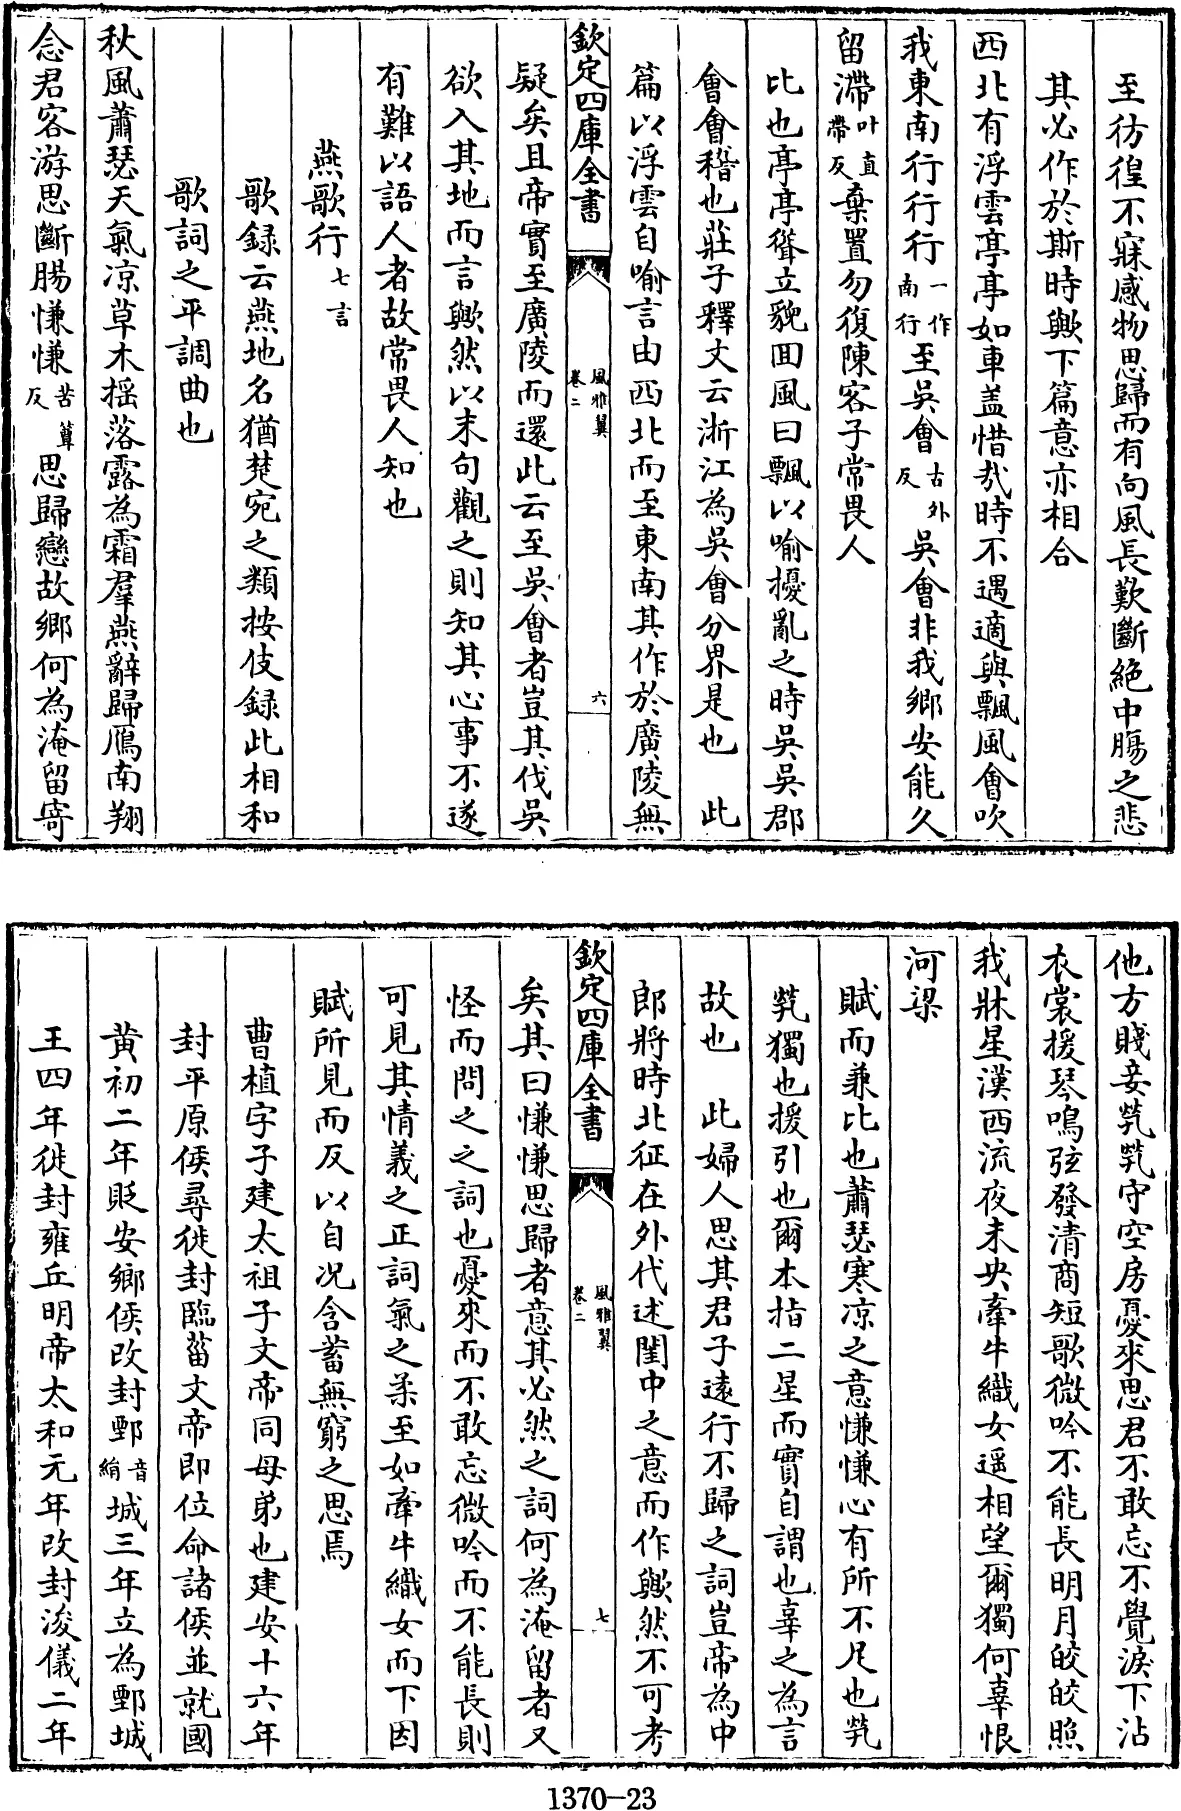 至彷徨不寐感物思歸而有向風長歎斷絕中腸之悲
其必作於斯時歟下篇意亦相合
西北有浮雲亭亭如車盖惜哉時不遇適與飄風會吹
我東南行行行一作南行至吳會古外反吳會非我鄉安能久
留滯叶直帶反棄置勿復陳客子常畏人
比也亭亭聳立貌回風曰飄以喻擾亂之時吳吳郡
會會稽也莊子釋文云浙江為吳會分界是也　此
篇以浮雲自喻言由西北而至東南其作於廣陵無
欽定四庫全書
風雅翼
卷二
六
疑矣且帝實至廣陵而還此云至吳會者豈其伐吳
欲入其地而言歟然以末句觀之則知其心事不遂
有難以語人者故常畏人知也
燕歌行七言
歌錄云燕地名猶楚宛之類按伎錄此相和
歌詞之平調曲也
秋風蕭瑟天氣凉草木搖落露為霜羣燕辭歸鴈南翔
念君客游思斷腸慊慊苦簟反思歸戀故鄉何為淹留寄
他方賤妾煢煢守空房憂來思君不敢忘不覺淚下沾
衣裳援琴鳴弦發清商短歌微吟不能長明月皎皎照
我牀星漢西流夜未央牽牛織女遥相望爾獨何辜恨
河梁
賦而兼比也蕭瑟寒凉之意慊慊心有所不足也煢
煢獨也援引也爾本指二星而實自謂也辜之為言
故也　此婦人思其君子遠行不歸之詞豈帝為中
郎將時北征在外代述閨中之意而作歟然不可考
欽定四庫全書
風雅翼
卷二
七
矣其曰慊慊思歸者意其必然之詞何為淹留者又
怪而問之之詞也憂來而不敢忘微吟而不能長則
可見其情義之正詞氣之柔至如牽牛織女而下因
賦所見而反以自况含蓄無窮之思焉
曹植字子建太祖子文帝同母弟也建安十六年
封平原侯尋徙封臨菑文帝即位命諸侯並就國
黄初二年貶安鄉侯改封鄄音絹城三年立為鄄城
王四年徙封雍丘明帝太和元年改封浚儀二年
1370-23